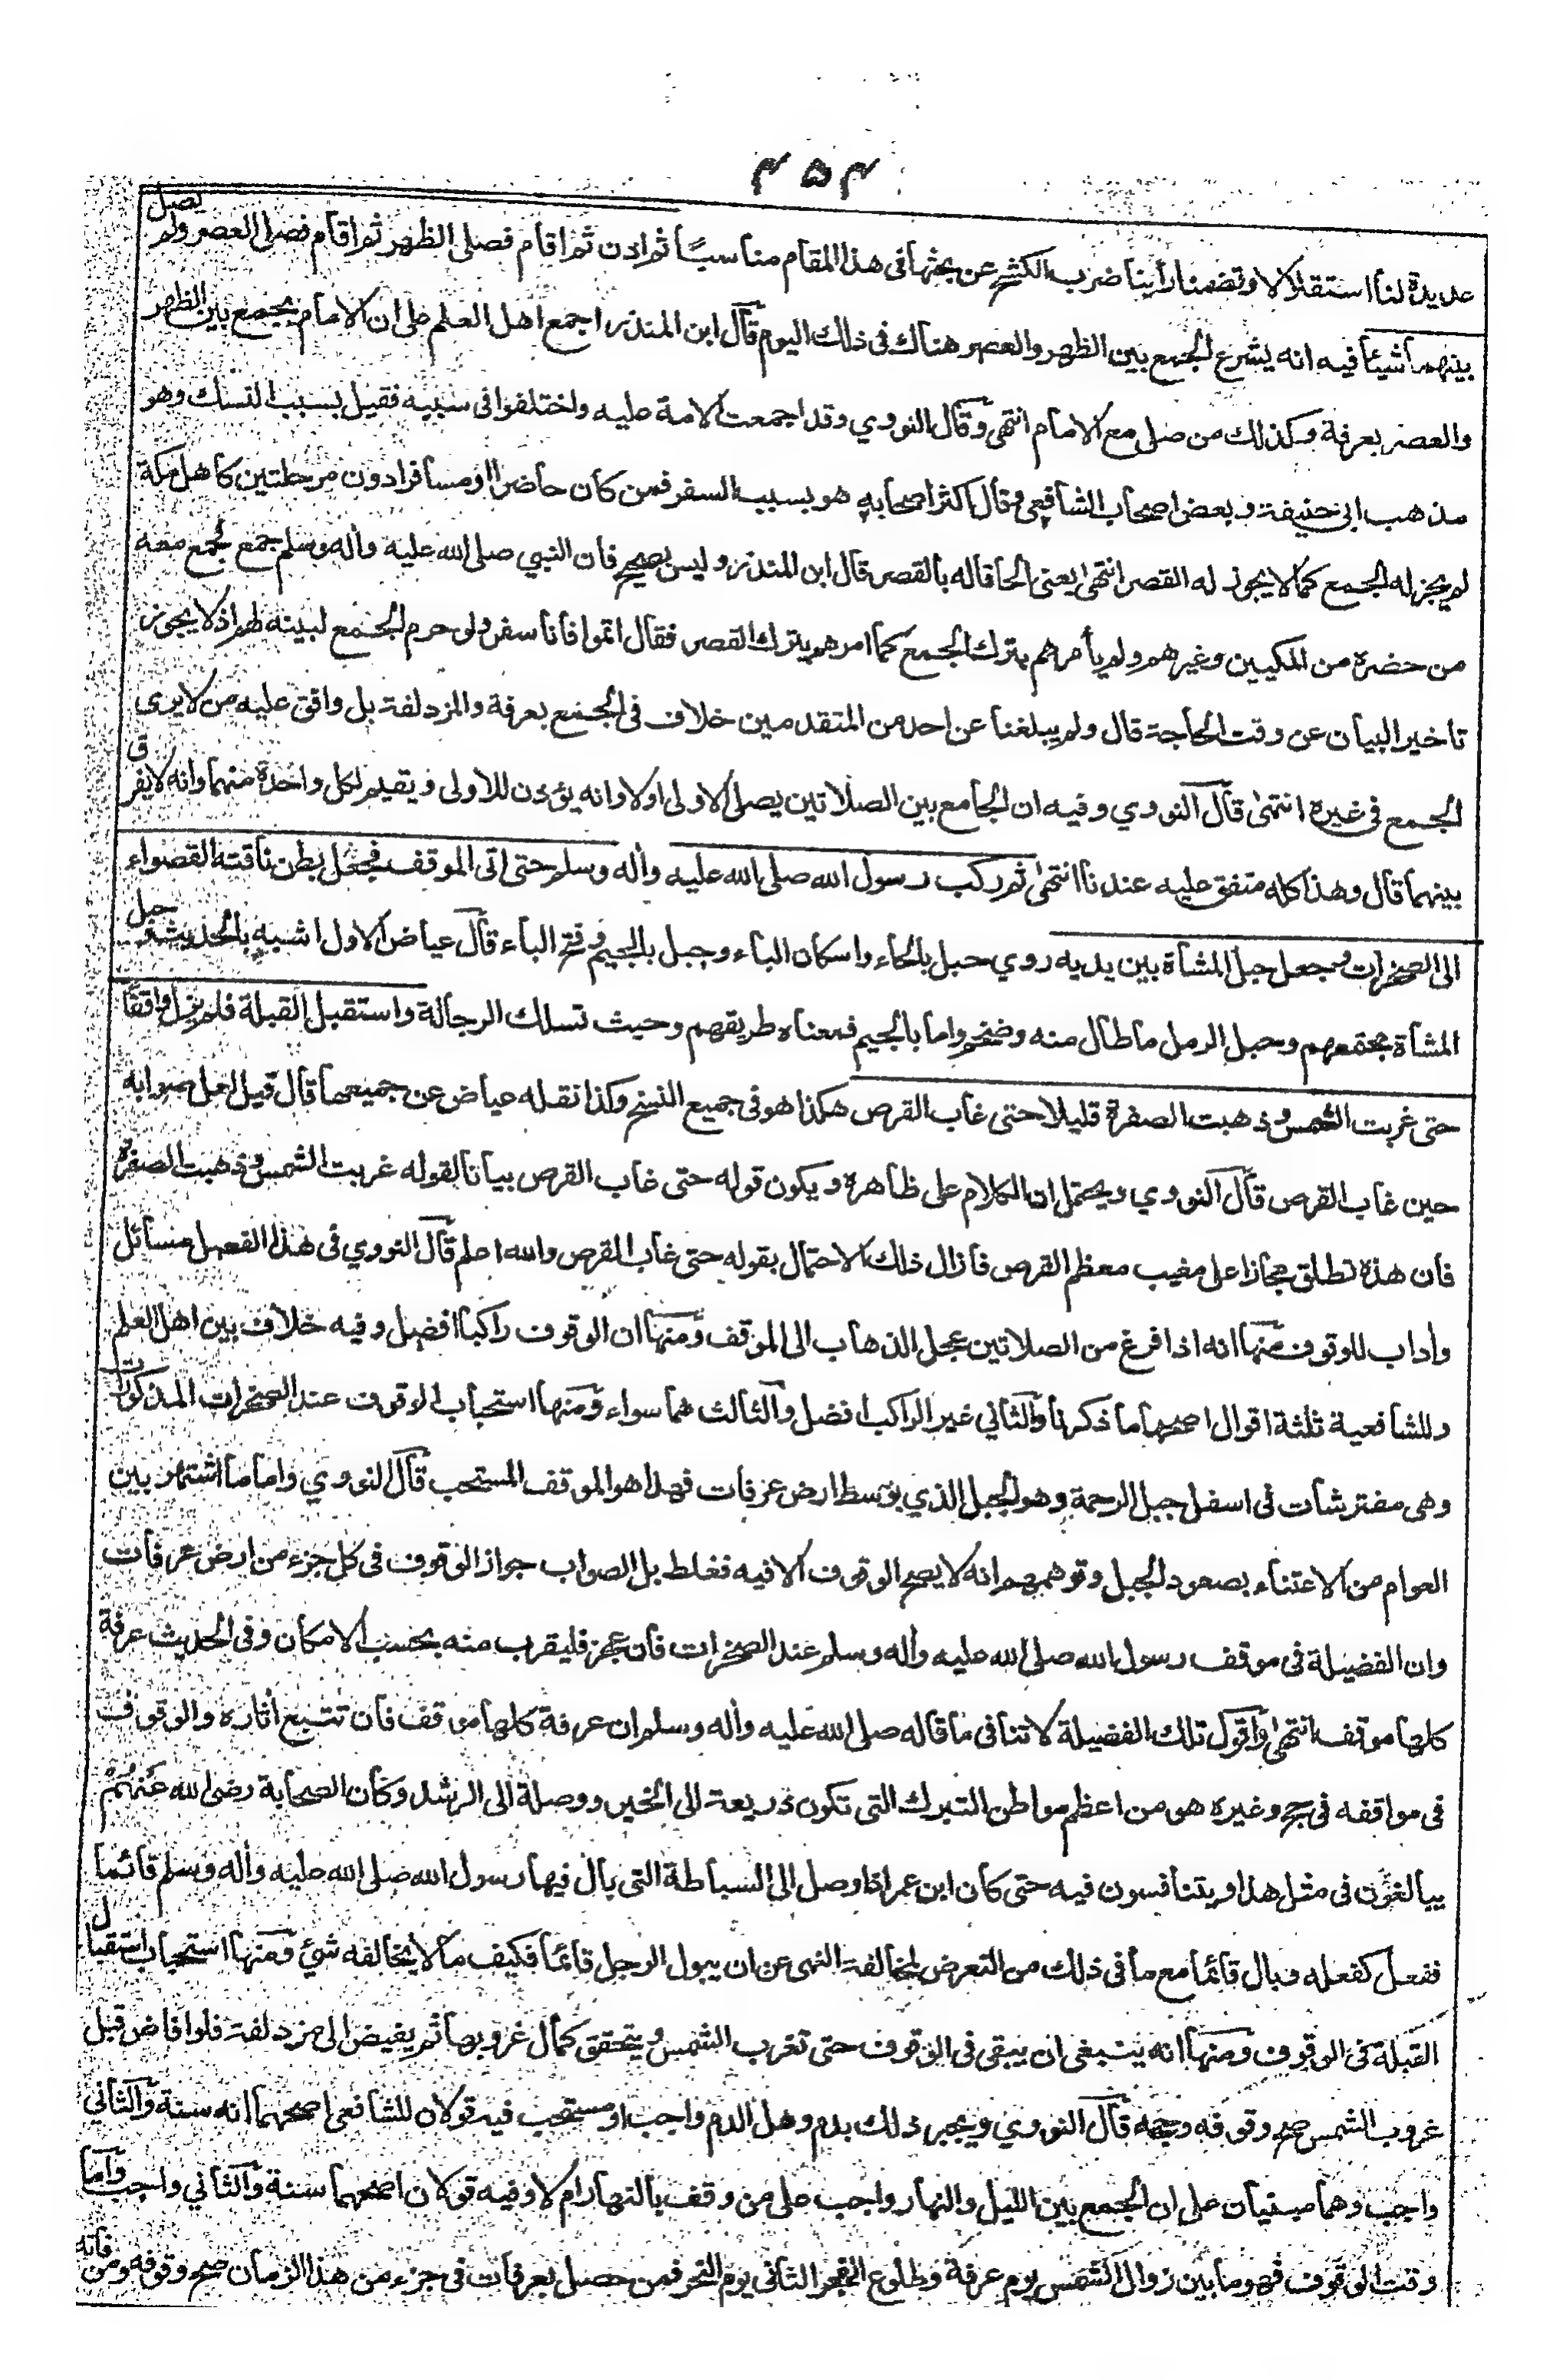 ٤٥٤
عديدة لنا استقلالا وتضمنا رأينا ضرب الكشح عن بحثها فى هذا المقام مناسبًا ثم اذن ثم اقام فصلى الظهر ثم اقام فصلى العصر ولم يصل
بينهما شيئا فيه انه يشرع الجمع بين الظهر والعصر هناك فى ذلك اليوم قال ابن المنذر اجمع اهل العلم على ان الامام يجمع بين الظهر
والعصر بعرفة وكذلك من صلى مع الامام انتهى وقال النووي وقد اجمعت الامة عليه واختلفوا فى سببه فقيل بسبب النسك وهو
مذهب ابى حنيفة وبعض اصحاب الشافعى وقال اكثر اصحابه هو بسبب السفر فمن كان حاضرا او مسافرا دون مرحلتين كاهل مكة
لم يجز له الجمع كما لا يجوز له القصر انتهى يعنى الحاقا له بالقصر قال ابن المنذر وليس بصحيح فان النبي صلى الله عليه وأله وسلم جمع فجمع معه
من حضره من المكيين وغيرهم ولم يأمرهم بترك الجمع كما امرهم بترك القصر فقال اتموا فانا سفر ولو حرم الجمع لبينه لهم اذ لا يجوز
تاخير البيان عن وقت الحاجة قال ولم يبلغنا عن احد من المتقدمين خلاف فى الجمع بعرفة والمزدلفة بل وافق عليه من لا يرى
الجمع فى غيره انتهى قال النووي وفيه ان الجامع بين الصلاتين يصلى الاولى اولا وانه يؤذن للاولى ويقيم لكل واحدة منهما وانه لا يفرق
بينهما قال وهذا كله متفق عليه عندنا انتهى ثم ركب رسول الله صلى الله عليه وأله وسلم حتى اتى الموقف فجعل بطن ناقته القصواء
الى الصخرات وجعل حبل المشاة بين يديه روي حبل بالحاء واسكان الباء وجبل بالجيم وفتح الباء قال عياض الاول اشبه بالحديث وحبل
المشاة مجتمعهم وحبل الرمل ما طال منه وضخم واما بالجيم فمعناه طريقهم وحيث تسلك الرجالة واستقبل القبلة فلم يزل واقفًا
حتى غربت الشمس وذهبت الصفرة قليلا حتى غاب القرص هكذا هو فى جميع النسخ وكذا نقله عياض عن جميعها قال قيل لعل صوابه
حين غاب القرص قال النووي ويحتمل ان الكلام على ظاهره ويكون قوله حتى غاب القرص بيانا لقوله غربت الشمس وذهبت الصفرة
فان هذه تطلق مجازا على مغيب معظم القرص فازال ذلك الاحتمال بقوله حتى غاب القرص والله اعلم قال النووي فى هذا الفصل مسائل
وأداب للوقوف منها انه اذا فرغ من الصلاتين عجل الذهاب الى الموقف ومنها ان الوقوف راكبا افضل وفيه خلاف بين اهل العلم
وللشافعية ثلثة اقوال اصحها ما ذكرنا والثاني غير الراكب افضل والثالث هما سواء ومنها استحباب الوقوف عند الصخرات المذكورات
وهى مفترشات فى اسفل جبل الرحمة وهو الجبل الذي بوسط ارض عرفات فهذا هو الموقف المستحب قال النووي واما ما اشتهر بين
العوام من الاعتناء بصعود الجبل وتوهمهم انه لا يصح الوقوف الا فيه فغلط بل الصواب جواز الوقوف فى كل جزء من ارض عرفات
وان الفضيلة فى موقف رسول الله صلى الله عليه وأله وسلم عند الصخرات فان عجز فليقرب منه بحسب الامكان وفى الحديث عرفة
كلها موقف انتهى واقول تلك الفضيلة لا تنافى ما قاله صلى الله عليه وأله وسلم ان عرفة كلها موقف فان تتبع أثاره والوقوف
فى مواقفه فى حج وغيره هو من اعظم مواطن التبرك التى تكون ذريعة الى الخير ووصلة الى الرشد وكان الصحابة رضى الله عنهم
يبالغون فى مثل هذا ويتنافسون فيه حتى كان ابن عمر اذا وصل الى السباطة التى بال فيها رسول الله صلى الله عليه وأله وسلم قائما
ففعل كفعله وبال قائما مع ما فى ذلك من التعرض لمخالفة النهى عن ان يبول الرجل قائما فكيف ما لا يخالفه شئ ومنها استحباب استقبال
القبلة فى الوقوف ومنها انه ينبغى ان يبقى فى الوقوف حتى تغرب الشمس ويتحقق كمال غروبها ثم يفيض الى مزدلفة فلو افاض قبل
غروب الشمس صح وقوفه وحجه قال النووي ويجبر ذلك بدم وهل الدم واجب او مستحب فيه قولان للشافعى اصحهما انه سنة والثاني
واجب وهما مبنيان على ان الجمع بين الليل والنهار واجب على من وقف بالنهار ام لا وفيه قولان اصحهما سنة والثاني واجب واما
وقت الوقوف فهو ما بين زوال الشمس يوم عرفة وطلوع الفجر الثانى يوم النحر فمن حصل بعرفات فى جزء من هذا الزمان صح وقوفه ومن فاته